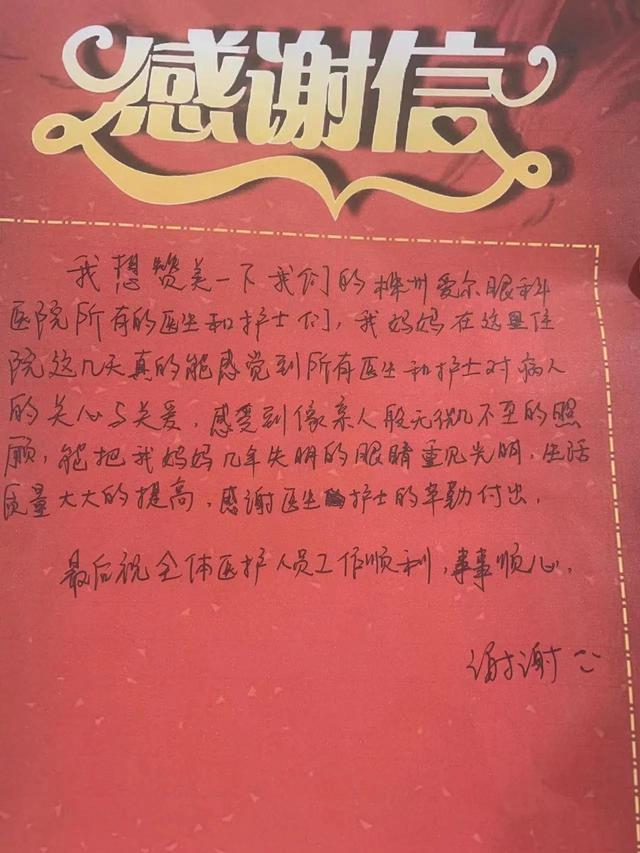 感谢信
我想赞美一下我们的株州爱尔眼科
医院所有的医生和护士们，我妈妈在这里住
院这几天真的能感觉到所有医生和护士对病人
的关心与关爱，感受到像亲人般无微不至的照
顾，能把我妈妈几年失明的眼睛重见光明，生活
质量大大的提高，感谢医生护士的辛勤付出，
最后祝全体医护人员工作顺利，事事顺心，
谢谢